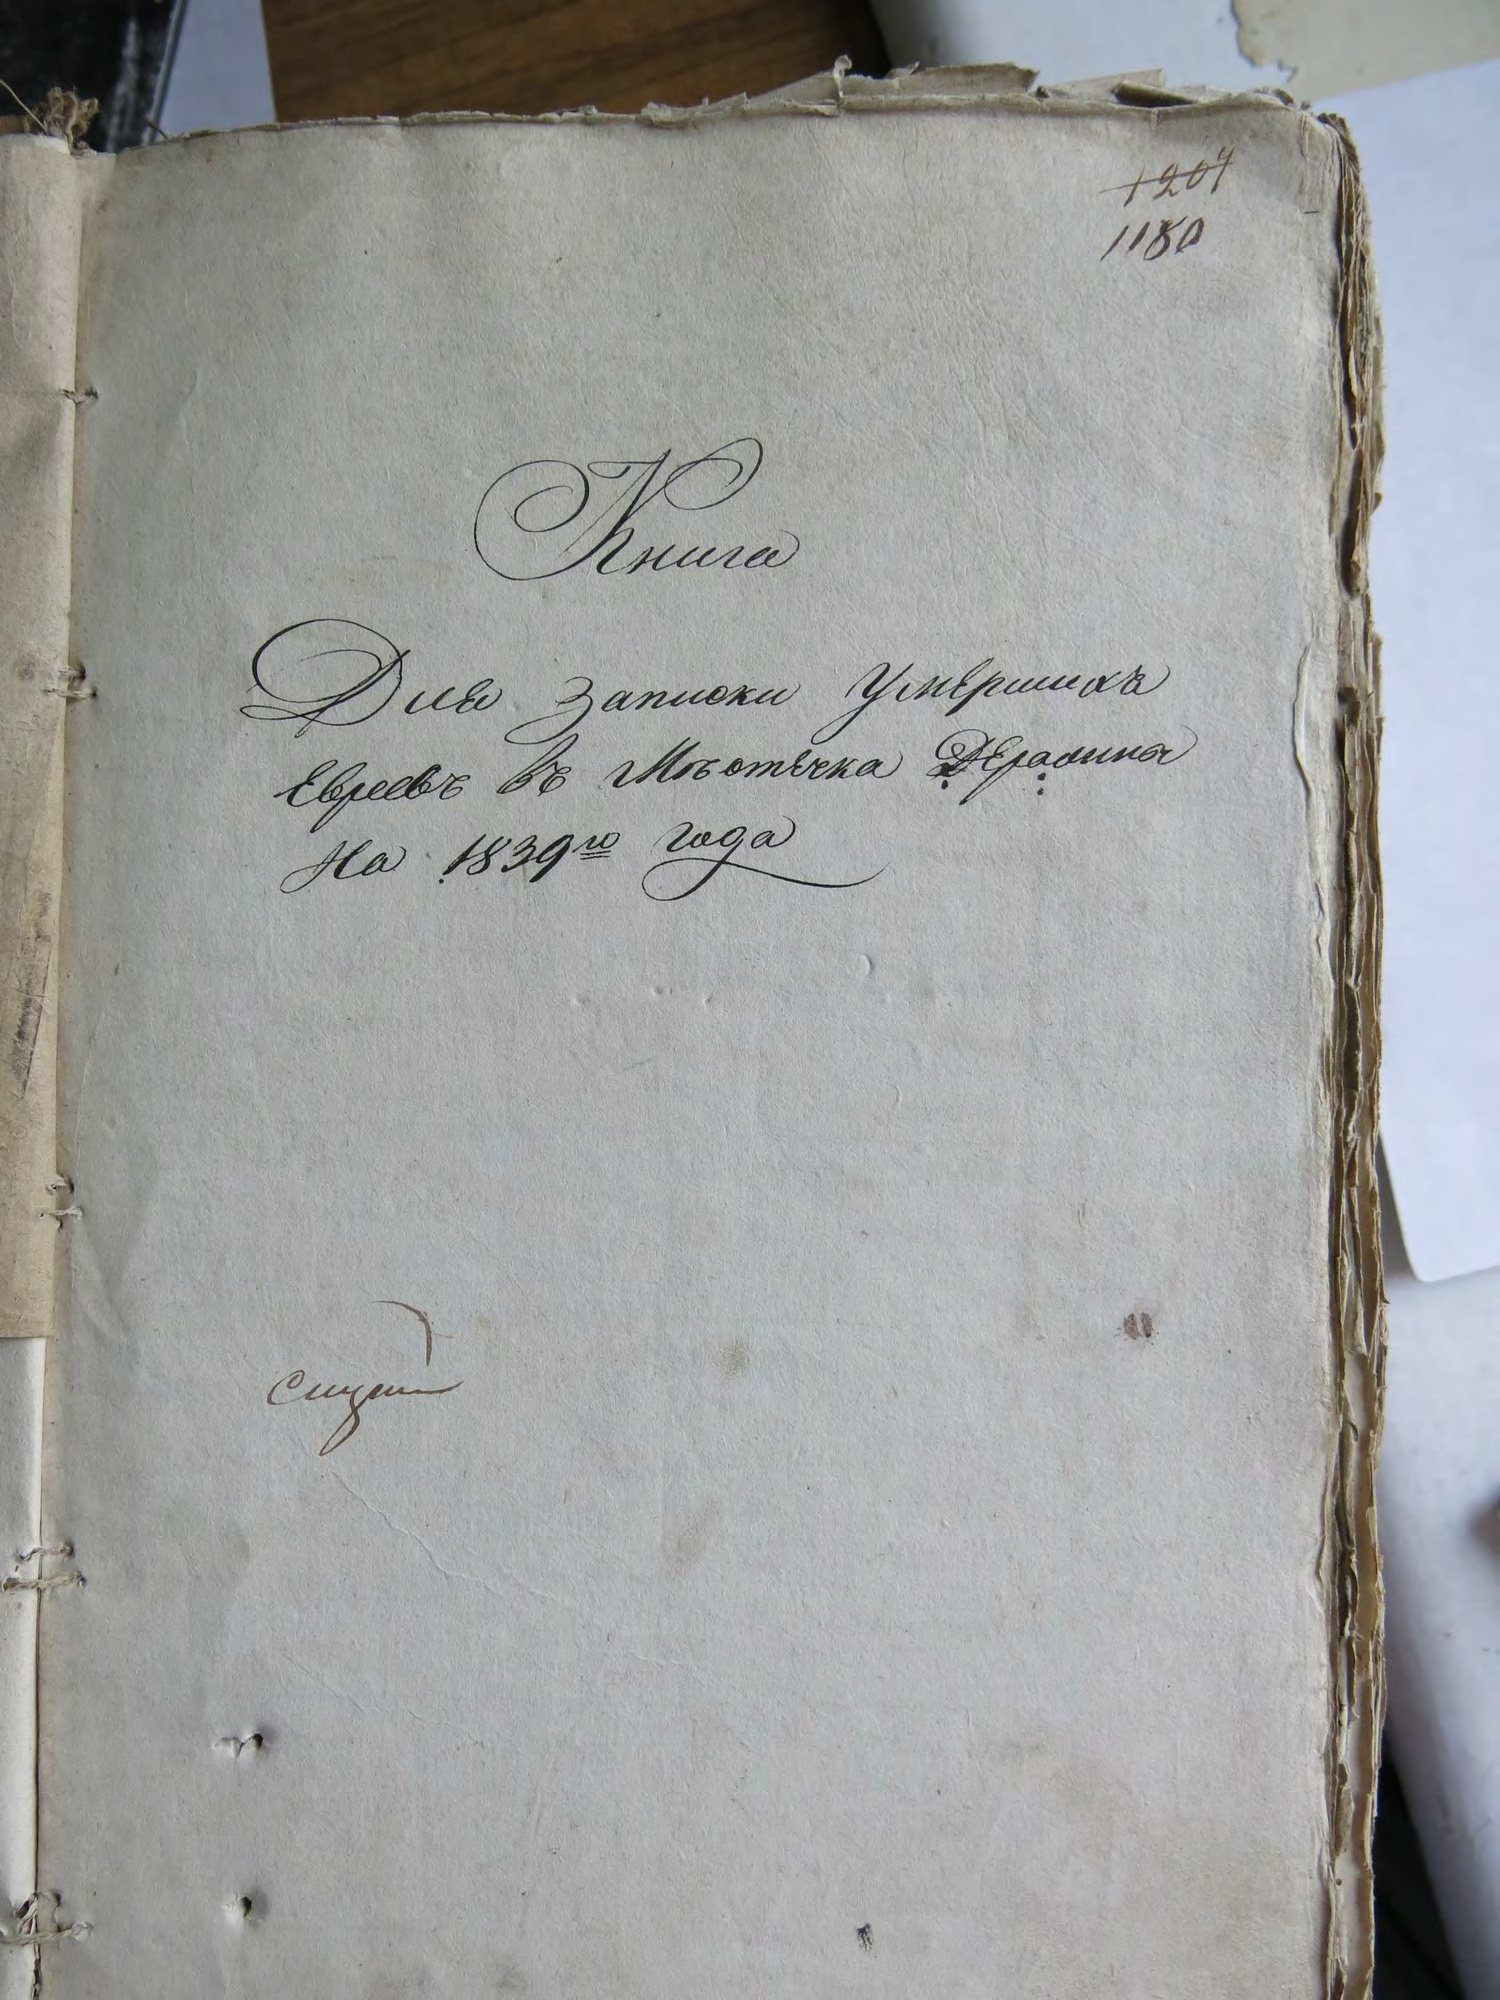 1204
1180
Книга
Для записки Умершихъ
Евреевъ въ Мѣстечка
На 1839го года